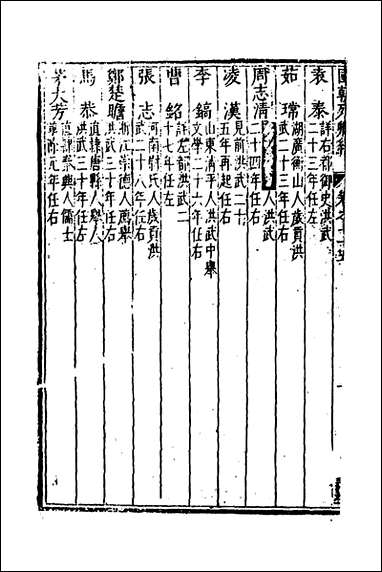 國朝列卿紀 卷之七十
袁泰 詳右都御史洪武
二十三年任左
茹瑺 湖廣衡山人歲貢洪
武二十三年任右
周志清 人洪武
二十四年任右
凌漢 見前洪武二十
五年再起任右
李鎬 山東清平人洪武中舉
文學二十六年任右
曹銘 詳左都洪武二
十七年任左
張志 河南 氏人歲貢洪
武二十八年任右
鄭楚瞻 浙江崇德人薦舉
洪武三十年任右
馬恭 直隸唐縣人舉人
洪武三十年任右
茅大芳 直隸泰興人儒士
元年任右